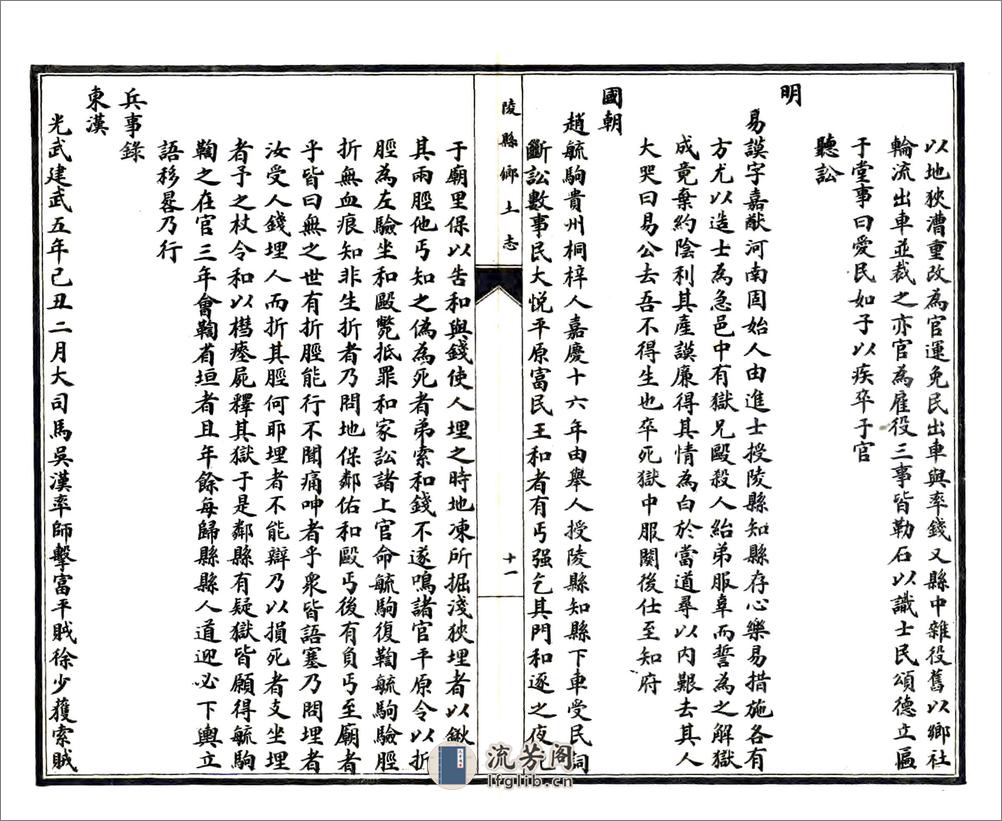 以地狹漕重改為官運免民出車與率錢又縣中雜役舊以鄉社
輪流出車並裁之亦官為雇役三事皆勒石以識士民頌德立匾
于堂事曰愛民如子以疾卒于官
聽訟
明
易謨字嘉猷河南固始人由進士授陵縣知縣存心樂易措施各有
方尤以造士為急邑中有獄兄毆殺人紿弟服辜而誓為之解獄
成竟棄約陰利其產謨廉得其情為白於當道尋以內艱去其人
大哭曰易公去吾不得生也卒死獄中服闋後仕至知府
國朝
趙毓駒貴州桐梓人嘉慶十六年由舉人授陵縣知縣下車受民詞
斷訟數事民大悅平原富民王和者有丐强乞其門和逐之夜死
陵縣鄉土志
十一
于廟里保以告和與錢使人埋之時地凍所掘淺狹埋者以鍬折
其兩脛他丐知之偽為死者弟索和錢不遂鳴諸官平原令以折
脛為左驗坐和毆斃抵罪和家訟諸上官命毓駒復鞫毓駒驗脛
折無血痕知非生折者乃問地保鄰佑和毆丐後有負丐至廟者
乎皆曰無之世有折脛能行不聞痛呻者乎衆皆語塞乃問埋者
汝受人錢埋人而折其脛何耶埋者不能辯乃以損死者支坐埋
者予之杖令和以槥瘞屍釋其獄于是鄰縣有疑獄皆願得毓駒
鞫之在官三年會鞫省垣者且年餘每歸縣縣人道迎必下輿立
語移晷乃行
兵事錄
東漢
光武建武五年己丑二月大司馬吳漢率師擊富平賊徐少獲索賊
流芳阁
lfglib.cn